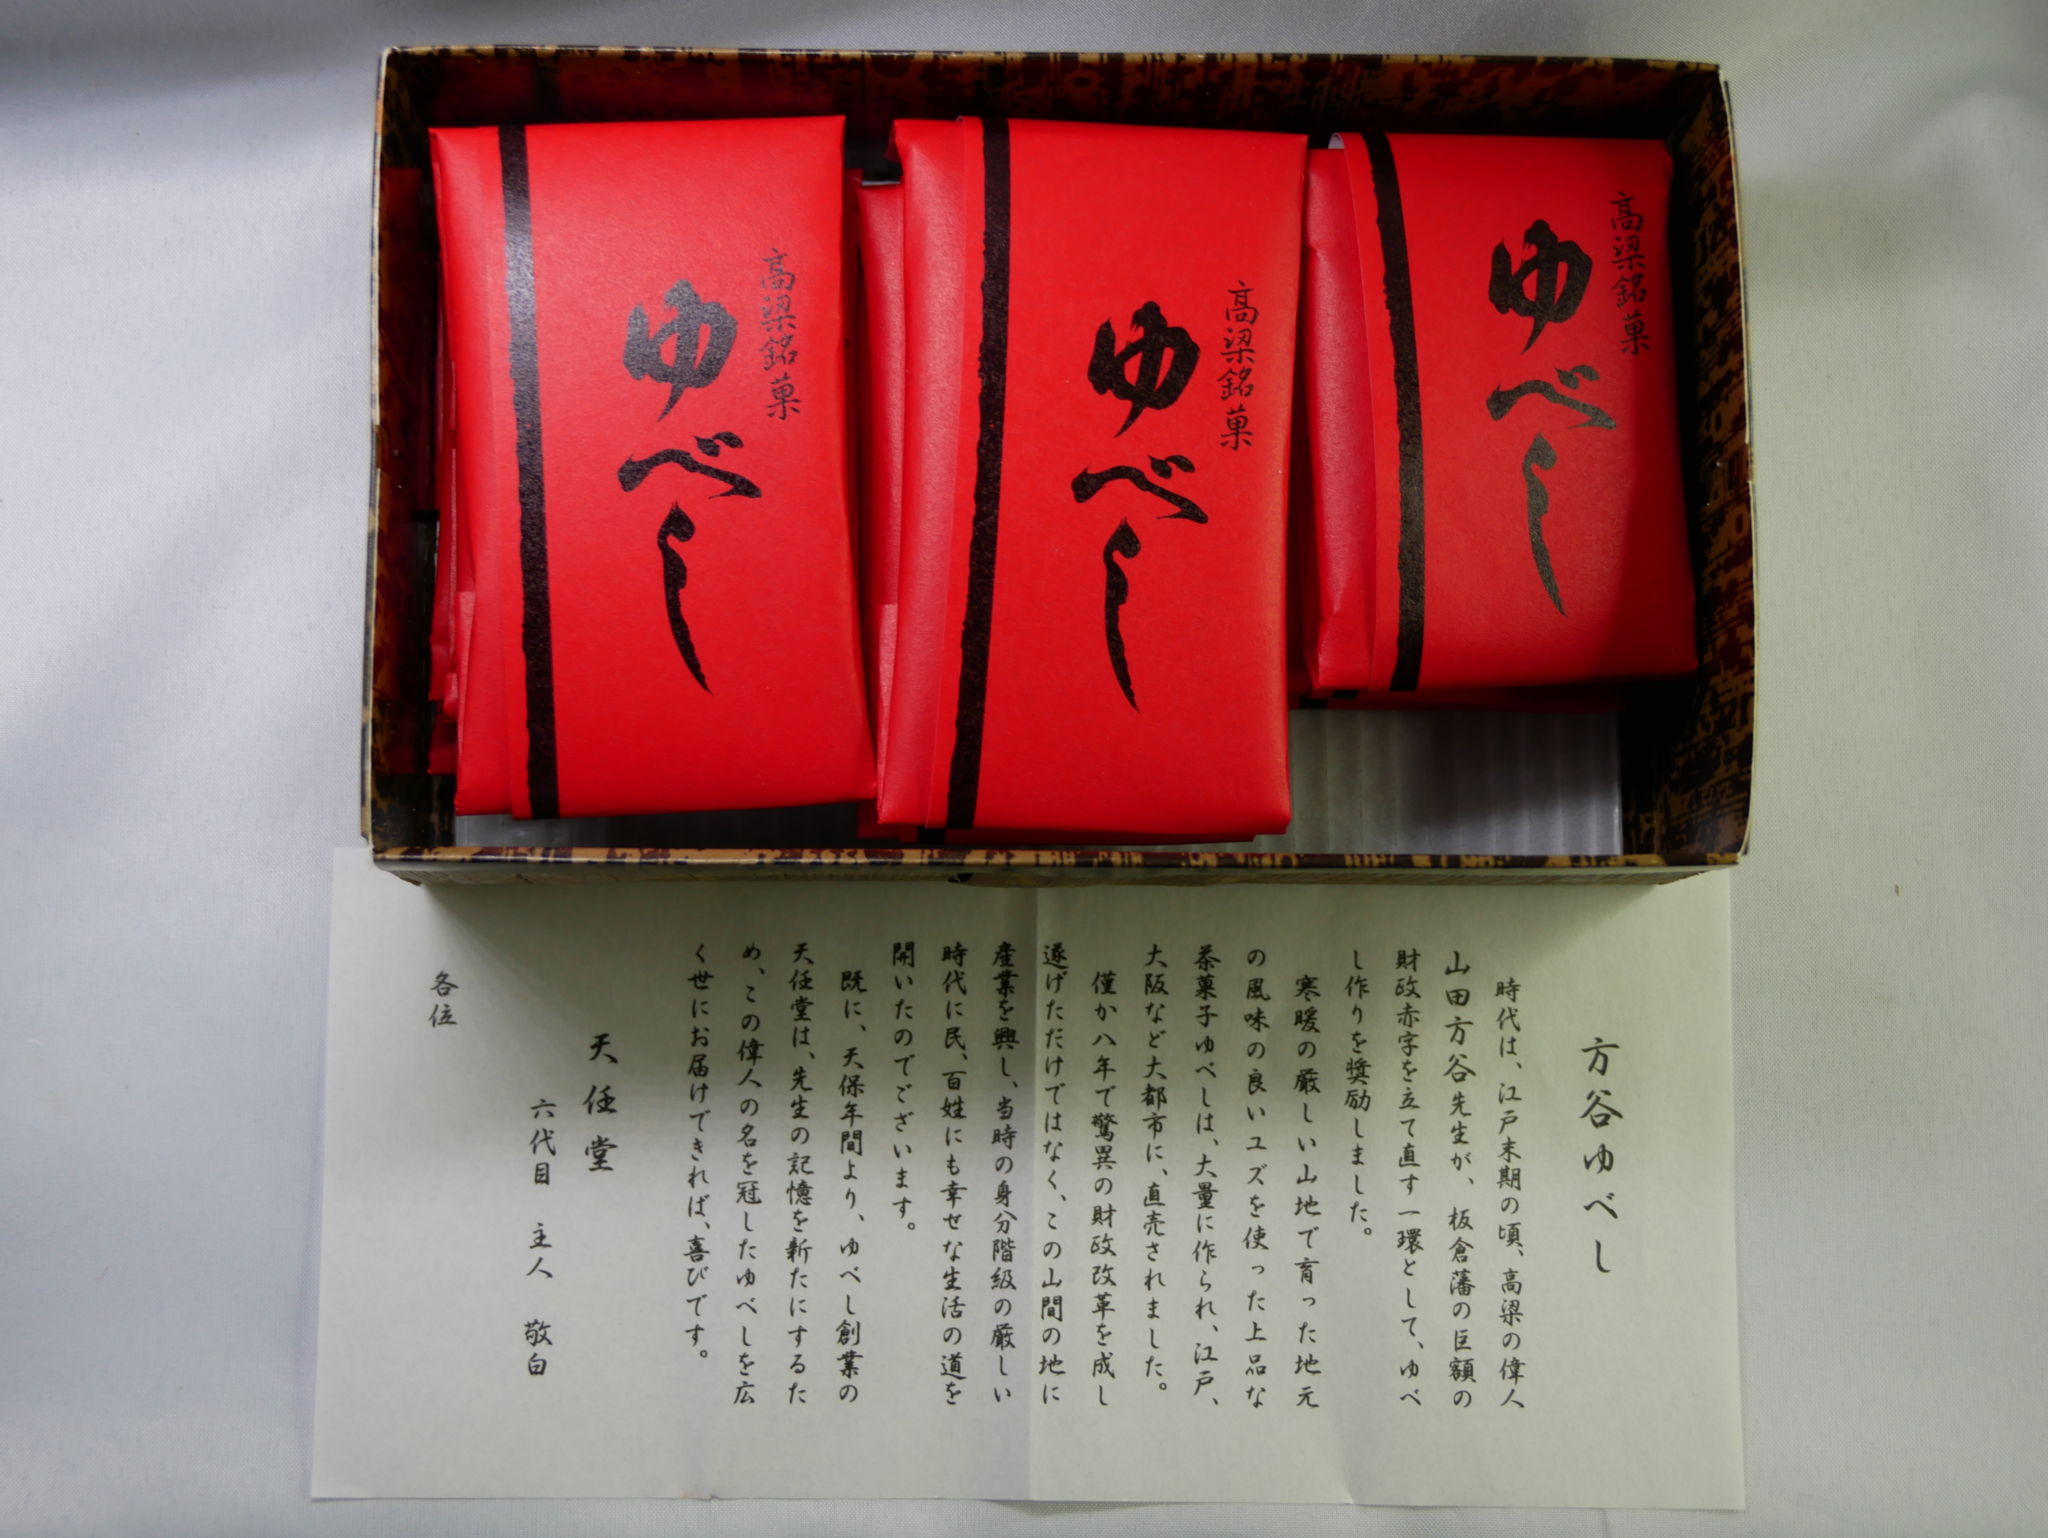 高梁銘菓
ゆべし
高梁銘菓
ゆべし
高梁銘菓
ゆべし
方谷ゆべし
時代は、江戸末期の頃、高梁の偉人
山田方谷先生が、板倉藩の巨額の
財政赤字を立て直す一環として、ゆべ
し作りを奨励しました。
寒暖の厳しい山地で育った地元
の風味の良いユズを使った上品な
茶菓子ゆべしは、大量に作られ、江戸、
大阪など大都市に、直売されました。
僅か八年で驚異の財政改革を成し
遂げただけではなく、この山間の地に
産業を興し、当時の身分階級の厳しい
時代に民、百姓にも幸せな生活の道を
開いたのでございます。
既に、天保年間より、ゆべし創業の
天任堂は、先生の記憶を新たにするた
め、この偉人の名を冠したゆべしを広
く世にお届けできれば、喜びです。
天任堂
六代目 主人 敬白
各位